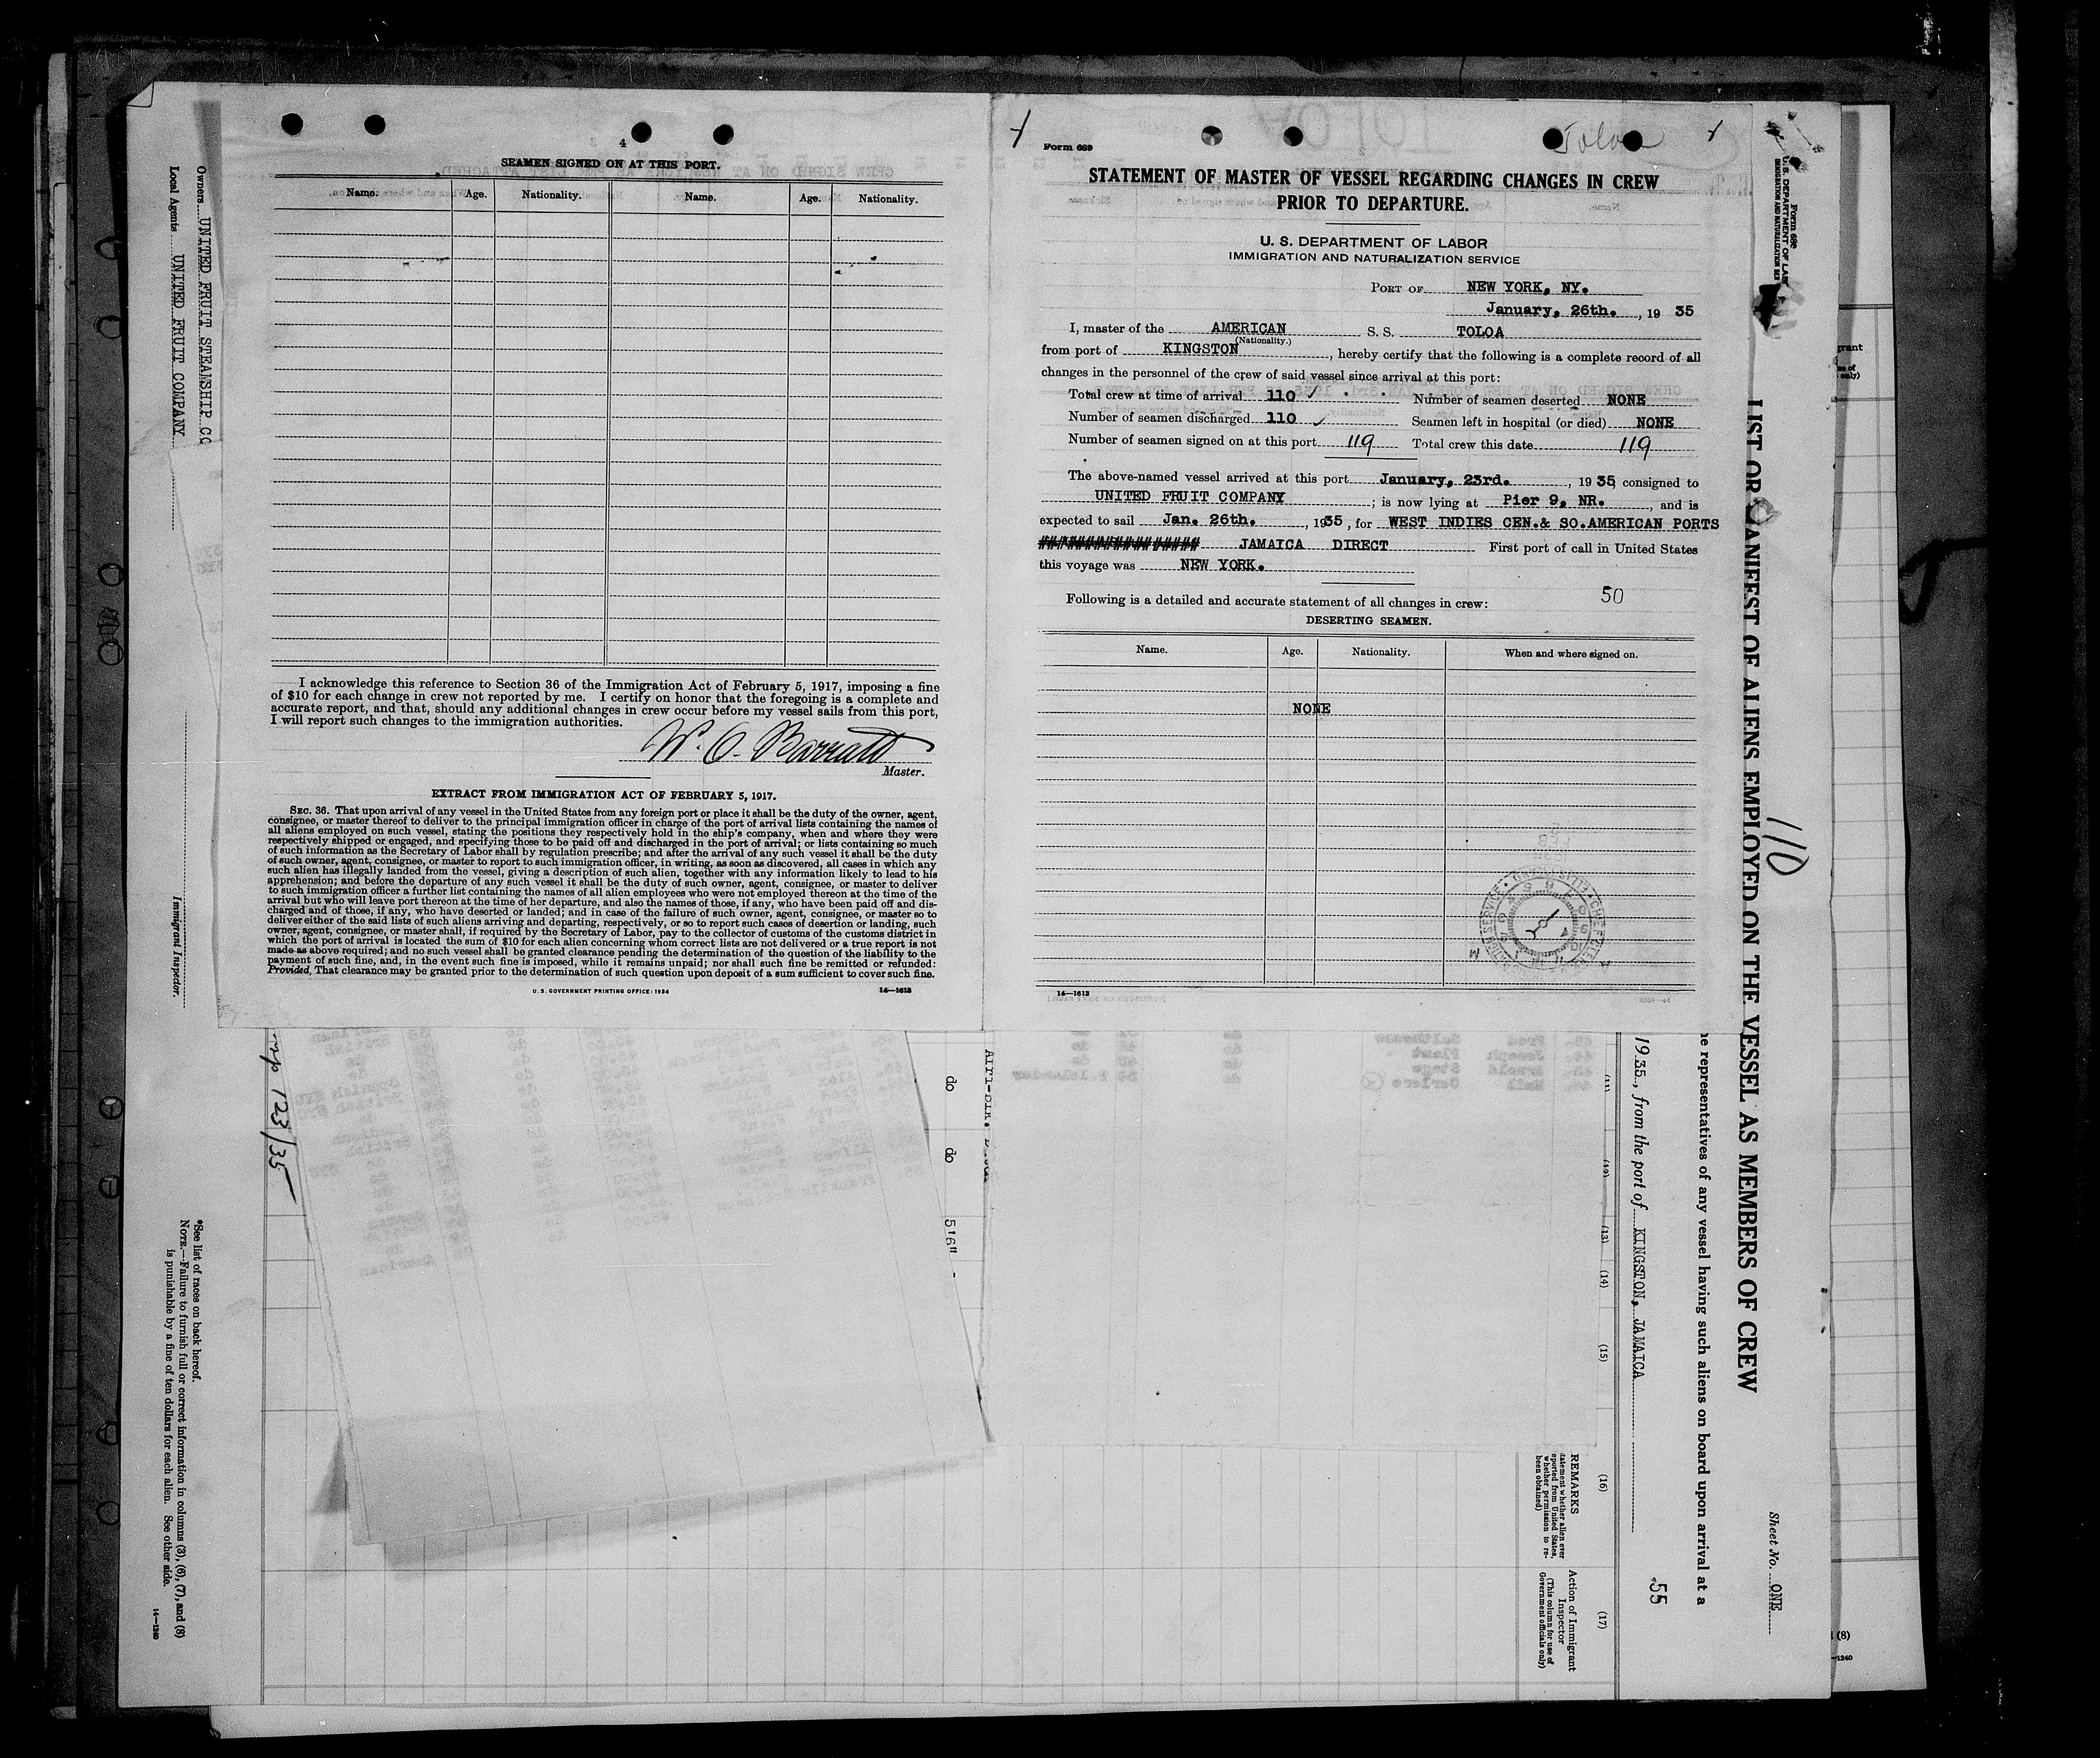 4
SEAMEN SIGNED ON AT THIS PORT.
Name. Age. Nationality. Name. Age. Nationality.
I acknowledge this reference to Section 36 of the Immigration Act of February 5, 1917, imposing a fine
of $10 for each change in crew not reported by me. I certify on honor that the foregoing is a complete and
accurate report, and that, should any additional changes in crew occur before my vessel sails from this port,
I will report such changes to the immigration authorities.
W. O. Barratt
Master.
EXTRACT FROM IMMIGRATION ACT OF FEBRUARY 5, 1917.
SEC. 36. That upon arrival of any vessel in the United States from any foreign port or place it shall be the duty of the owner, agent,
consignee, or master thereof to deliver to the principal immigration officer in charge of the port of arrival lists containing the names of
all aliens employed on such vessel, stating the positions they respectively hold in the ship's company, when and where they were
respectively shipped or engaged, and specifying those to be paid off and discharged in the port of arrival; or lists containing so much
of such information as the Secretary of Labor shall by regulation prescribe; and after the arrival of any such vessel it shall be the duty
of such owner, agent, consignee, or master to report to such immigration officer, in writing, as soon as discovered, all cases in which any
such alien has illegally landed from the vessel, giving a description of such alien, together with any information likely to lead to his
apprehension; and before the departure of any such vessel it shall be the duty of such owner, agent, consignee, or master to deliver
to such immigration officer a further list containing the names of all alien employees who were not employed thereon at the time of the
arrival but who will leave port thereon at the time of her departure, and also the names of those, if any, who have been paid off and dis-
charged and of those, if any, who have deserted or landed; and in case of the failure of such owner, agent, consignee, or master so to
deliver either of the said lists of such aliens arriving and departing, respectively, or so to report such cases of desertion or landing, such
owner, agent, consignee, or master shall, if required by the Secretary of Labor, pay to the collector of customs of the customs district in
which the port of arrival is located the sum of $10 for each alien concerning whom correct lists are not delivered or a true report is not
made as above required; and no such vessel shall be granted clearance pending the determination of the question of the liability to the
payment of such fine, and, in the event such fine is imposed, while it remains unpaid; nor shall such fine be remitted or refunded:
Provided, That clearance may be granted prior to the determination of such question upon deposit of a sum sufficient to cover such fine.
U. S. GOVERNMENT PRINTING OFFICE: 1934 14—1613
Form 689
Toloa
STATEMENT OF MASTER OF VESSEL REGARDING CHANGES IN CREW
PRIOR TO DEPARTURE.
U. S. DEPARTMENT OF LABOR
IMMIGRATION AND NATURALIZATION SERVICE
PORT OF NEW YORK, NY.
January, 26th. , 19 35
I, master of the AMERICAN S. S. TOLOA
(Nationality.)
from port of KINGSTON , hereby certify that the following is a complete record of all
changes in the personnel of the crew of said vessel since arrival at this port:
Total crew at time of arrival 110 ✓ Number of seamen deserted NONE
Number of seamen discharged 110 ✓ Seamen left in hospital (or died) NONE
Number of seamen signed on at this port 119 Total crew this date 119
The above-named vessel arrived at this port January, 23rd. , 19 35 consigned to
UNITED FRUIT COMPANY ; is now lying at Pier 9, NR. , and is
expected to sail Jan. 26th. , 1935 , for WEST INDIES CEN.& SO.AMERICAN PORTS
JAMAICA DIRECT First port of call in United States
this voyage was NEW YORK.
50
Following is a detailed and accurate statement of all changes in crew:
DESERTING SEAMEN.
Name. Age. Nationality. When and where signed on.
NONE
14—1613
Owners UNITED FRUIT STEAMSHIP CO
Local Agents UNITED FRUIT COMPANY
Immigrant Inspector.
*See list of races on back hereof.
NOTE.—Failure to furnish full or correct information in columns (3), (6), (7), and (8)
is punishable by a fine of ten dollars for each alien. See other side.
14—1240
123/35
do do 5'6" -
Form 680
U. S. DEPARTMENT OF LAB
IMMIGRATION AND NATURALIZATION SER
LIST OR MANIFEST OF ALIENS EMPLOYED ON THE VESSEL AS MEMBERS OF CREW
110
Sheet No. ONE
representatives of any vessel having such aliens on board upon arrival at a
1935, from the port of KINGSTON, JAMAICA
55
(11) (12) (13) (14) (15) (16) (17)
REMARKS
statement whether alien ever
eported from United States,
whether permission to re-
been obtained)
Action of Immigrant
Inspector
(This column for use of
Government officials only)
grant
only)
(8)
—1240